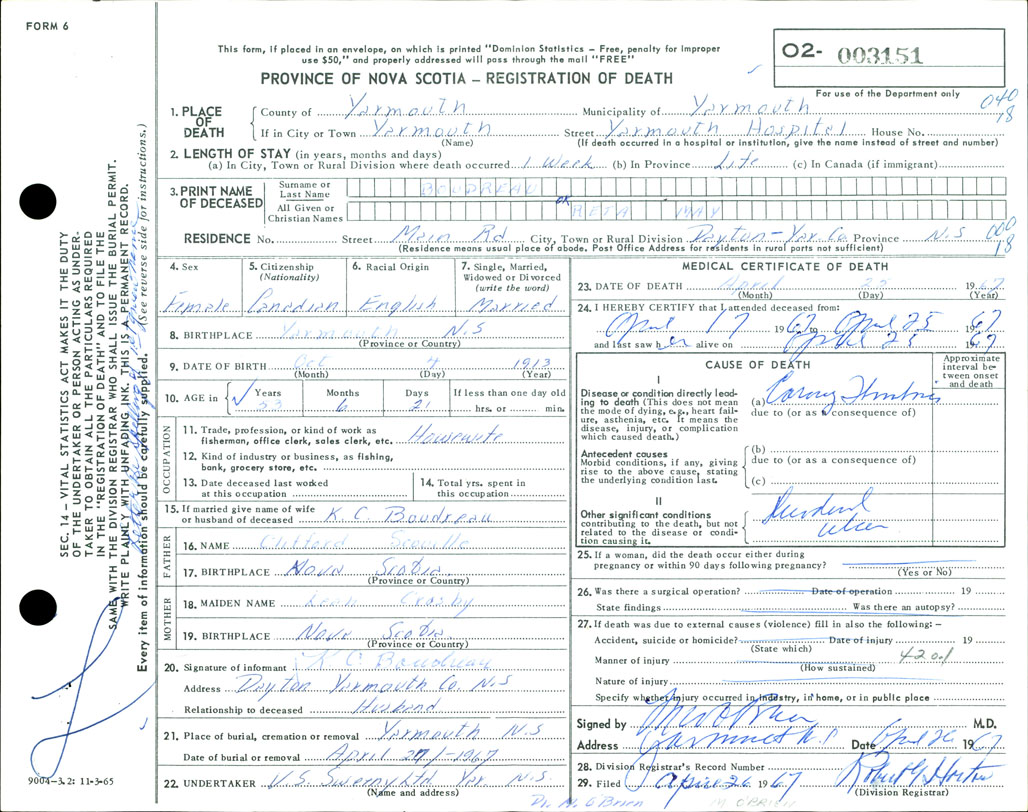 FORM 6
This form, if placed in an envelope, on which is printed "Dominion Statistics – Free, penalty for improper
use $50," and properly addressed will pass through the mail "FREE"
PROVINCE OF NOVA SCOTIA – REGISTRATION OF DEATH
02- 003151
For use of the Department only
040
18
1. PLACE OF DEATH
County of Yarmouth Municipality of Yarmouth
If in City or Town Yarmouth Street Yarmouth Hospital House No.
(Name) (If death occurred in a hospital or institution, give the name instead of street and number)
2. LENGTH OF STAY (in years, months and days)
(a) In City, Town or Rural Division where death occurred 1 Week (b) In Province Life (c) In Canada (if immigrant)
3. PRINT NAME OF DECEASED
Surname or Last Name BOUDREAU
All Given or Christian Names RETA MAY
OR
RESIDENCE No. Street Main Rd City, Town or Rural Division Dayton-Yar. Co. Province N.S
000
18
(Residence means usual place of abode. Post Office Address for residents in rural parts not sufficient)
4. Sex
Female
5. Citizenship
(Nationality)
Canadian
6. Racial Origin
English
7. Single, Married, Widowed or Divorced
(write the word)
Married
8. BIRTHPLACE Yarmouth N.S
(Province or Country)
9. DATE OF BIRTH Oct 4 1913
(Month) (Day) (Year)
10. AGE in Years Months Days If less than one day old
53 6 21 hrs. or min.
OCCUPATION
11. Trade, profession, or kind of work as
fisherman, office clerk, sales clerk, etc. Housewife
12. Kind of industry or business, as fishing,
bank, grocery store, etc.
13. Date deceased last worked
at this occupation
14. Total yrs. spent in
this occupation
15. If married give name of wife
or husband of deceased K. C. Boudreau
FATHER
16. NAME Clifford Scoville
17. BIRTHPLACE Nova Scotia
(Province or Country)
MOTHER
18. MAIDEN NAME Leah Crosby
19. BIRTHPLACE Nova Scotia
(Province or Country)
20. Signature of informant K C Boudreau
Address Dayton Yarmouth Co. N.S
Relationship to deceased Husband
21. Place of burial, cremation or removal Yarmouth N.S
Date of burial or removal April 27/-1967
22. UNDERTAKER V.S. Sweeny Ltd Yar. N.S.
(Name and address)
9004-3.2: 11-3-65
MEDICAL CERTIFICATE OF DEATH
23. DATE OF DEATH April 25 1967
(Month) (Day) (Year)
24. I HEREBY CERTIFY that I attended deceased from:
April 17 1967 to April 25 1967
and last saw her alive on April 25 1967
CAUSE OF DEATH
Approximate interval between onset and death
I
Disease or condition directly lead-
ing to death (This does not mean
the mode of dying, e.g., heart fail-
ure, asthenia, etc. It means the
disease, injury, or complication
which caused death.)
(a)
due to (or as a consequence of)
Antecedent causes
Morbid conditions, if any, giving
rise to the above cause, stating
the underlying condition last.
(b)
due to (or as a consequence of)
(c)
II
Other significant conditions
contributing to the death, but not
related to the disease or condi-
tion causing it.
Duodenal
ulcer
25. If a woman, did the death occur either during
pregnancy or within 90 days following pregnancy?
(Yes or No)
26. Was there a surgical operation? Date of operation 19
State findings Was there an autopsy?
27. If death was due to external causes (violence) fill in also the following: –
Accident, suicide or homicide? Date of injury 19
(State which)
Manner of injury 4201
(How sustained)
Nature of injury
Specify whether injury occurred in industry, in home, or in public place
Signed by M.D.
Address Yarmouth N.S Date April 26 1967
28. Division Registrar's Record Number
29. Filed April 26 1967 Robert G. Horton
(Division Registrar)
Dr. M. O'Brien M O'BRIEN
SEC. 14 – VITAL STATISTICS ACT MAKES IT THE DUTY
OF THE UNDERTAKER OR PERSON ACTING AS UNDER-
TAKER TO OBTAIN ALL THE PARTICULARS REQUIRED
IN THE "REGISTRATION OF DEATH" AND TO FILE THE
SAME WITH THE DIVISION REGISTRAR WHO SHALL ISSUE THE BURIAL PERMIT.
WRITE PLAINLY WITH UNFADING INK. THIS IS A PERMANENT RECORD.
Every item of information should be carefully supplied. (See reverse side for instructions.)